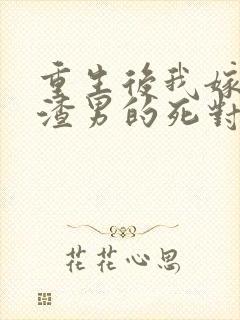 重生後我嫁
渣男的死對
花花心思